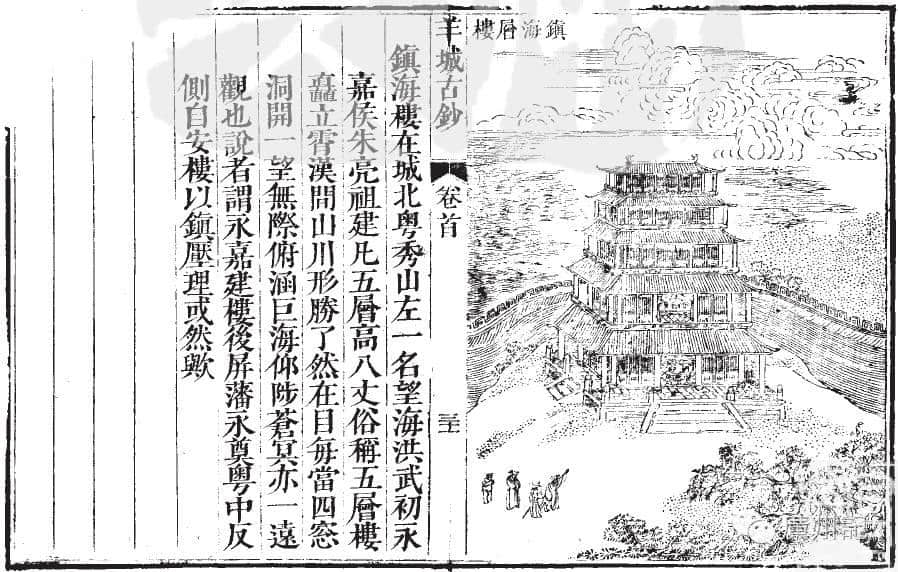 鎮海層樓
羊城古鈔
卷首
鎮海樓在城北粵秀山左一名望海洪武初永
嘉侯朱亮祖建凡五層高八丈俗稱五層樓
矗立霄漢間山川形勝了然在目每當四窓
洞開一望無際俯涵巨海仰陟蒼冥亦一遠
觀也說者謂永嘉建樓後屏藩永奠粵中反
側自安樓以鎮壓理或然歟